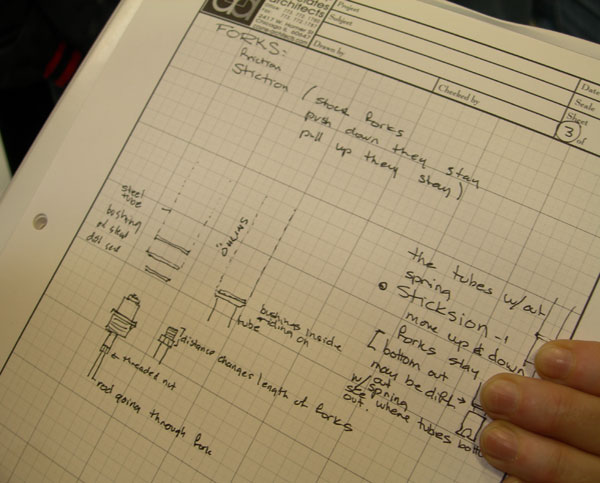 architects
Project
Subject
Drawn by
Checked by
Date
Scale
Sheet
3 of
FORKS:
friction
Stiction (stock forks
push down they stay
pull up they stay)
steel
tube
bushing
oil seal
dust seal
ÖHLINS
bushings inside
tube
threaded nut
rod going through fork
distance changes length of forks
the tubes w/out
spring
Sticksion -
move up & down
forks stay
bottom out
may be diff.
w/spring
out.
see where tubes bott